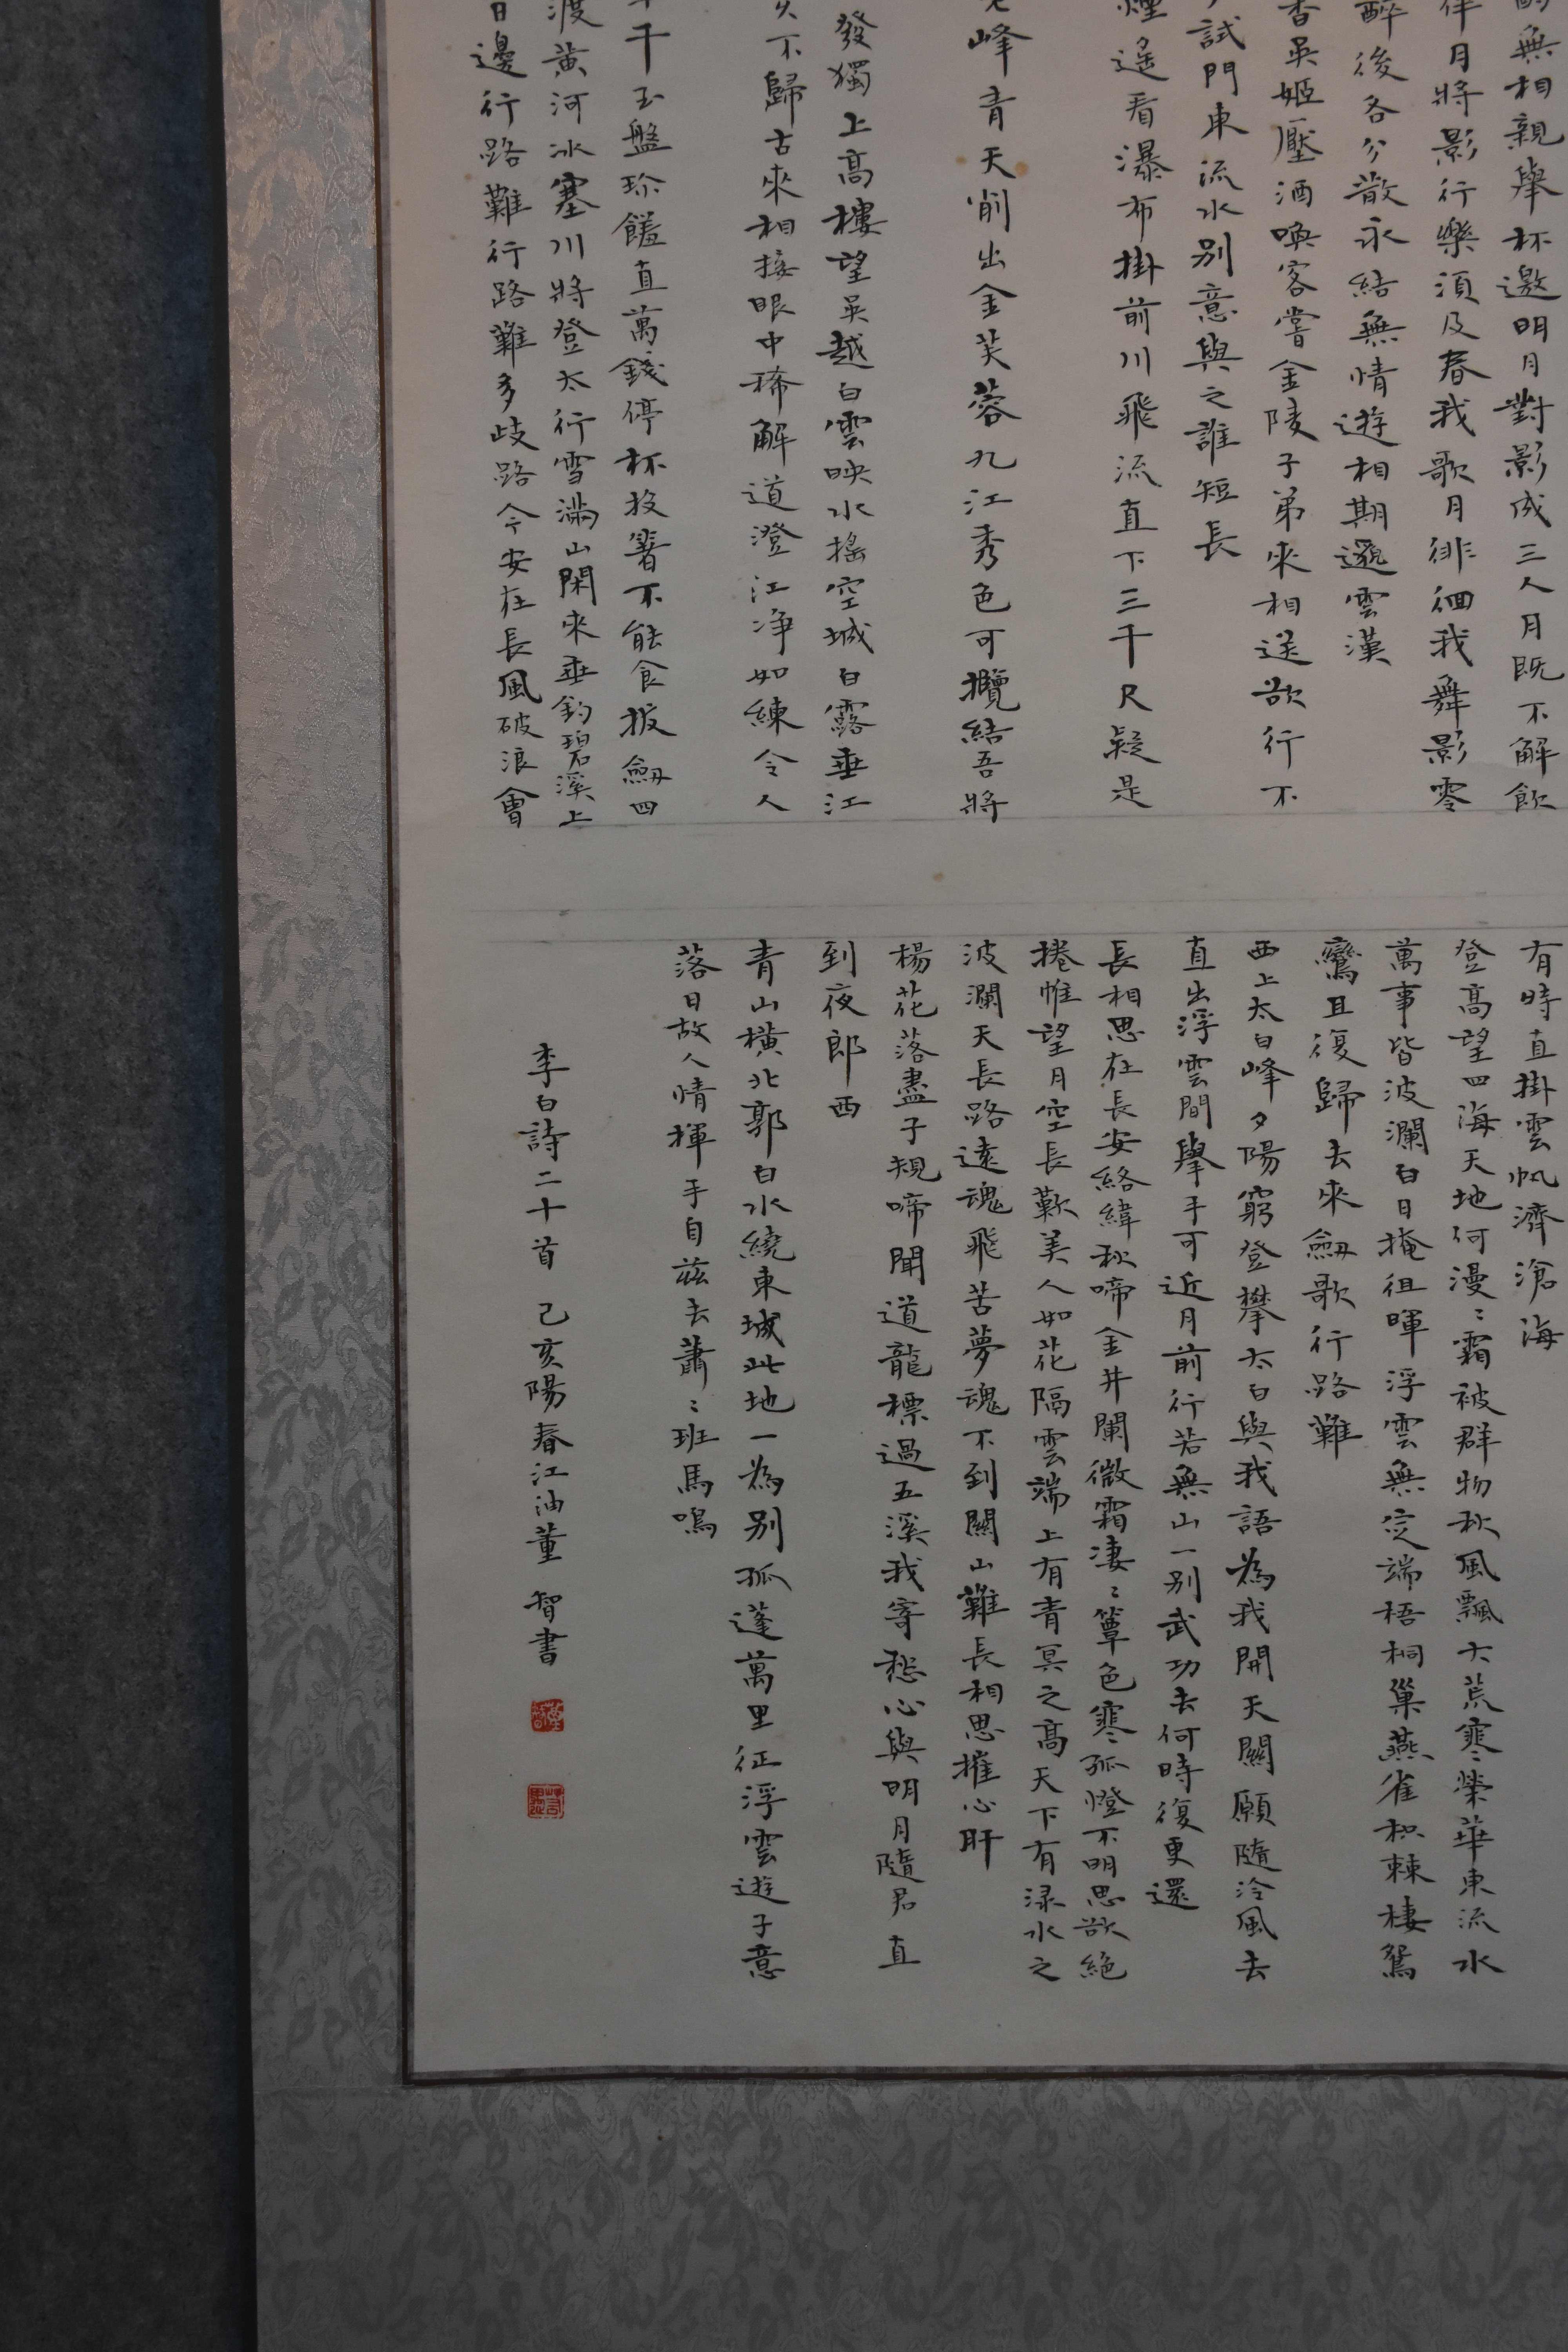 無相親舉杯邀明月對影成三人月既不解飲
伴月將影行樂須及春我歌月徘徊我舞影零
醉後各分散永結無情遊相期邈雲漢
香吳姬壓酒喚客嘗金陵子弟來相送欲行不
試門東流水別意與之誰短長
煙遙看瀑布掛前川飛流直下三千尺疑是
峰青天削出金芙蓉九江秀色可攬結吾將
發獨上高樓望吳越白雲映水搖空城白露垂江
久不歸古來相接眼中稀解道澄江淨如練令人
千玉盤珍饈直萬錢停杯投箸不能食拔劍四
渡黃河冰塞川將登太行雪滿山閑來垂釣碧溪上
日邊行路難行路難多歧路今安在長風破浪會
有時直掛雲帆濟滄海
登高望四海天地何漫〻霜被群物秋風飄大荒寒榮華東流水
萬事皆波瀾白日掩徂暉浮雲無定端梧桐巢燕雀枳棘棲鴛
鸞且復歸去來劍歌行路難
西上太白峰夕陽窮登攀太白與我語為我開天關願隨泠風去
直出浮雲間舉手可近月前行若無山一別武功去何時復更還
長相思在長安絡緯秋啼金井闌微霜凄〻簟色寒孤燈不明思欲絕
捲帷望月空長歎美人如花隔雲端上有青冥之高天下有淥水之
波瀾天長路遠魂飛苦夢魂不到關山難長相思摧心肝
楊花落盡子規啼聞道龍標過五溪我寄愁心與明月隨君直
到夜郎西
青山橫北郭白水繞東城此地一為別孤蓬萬里征浮雲遊子意
落日故人情揮手自茲去蕭〻班馬鳴
李白詩二十首 己亥陽春江油董智書